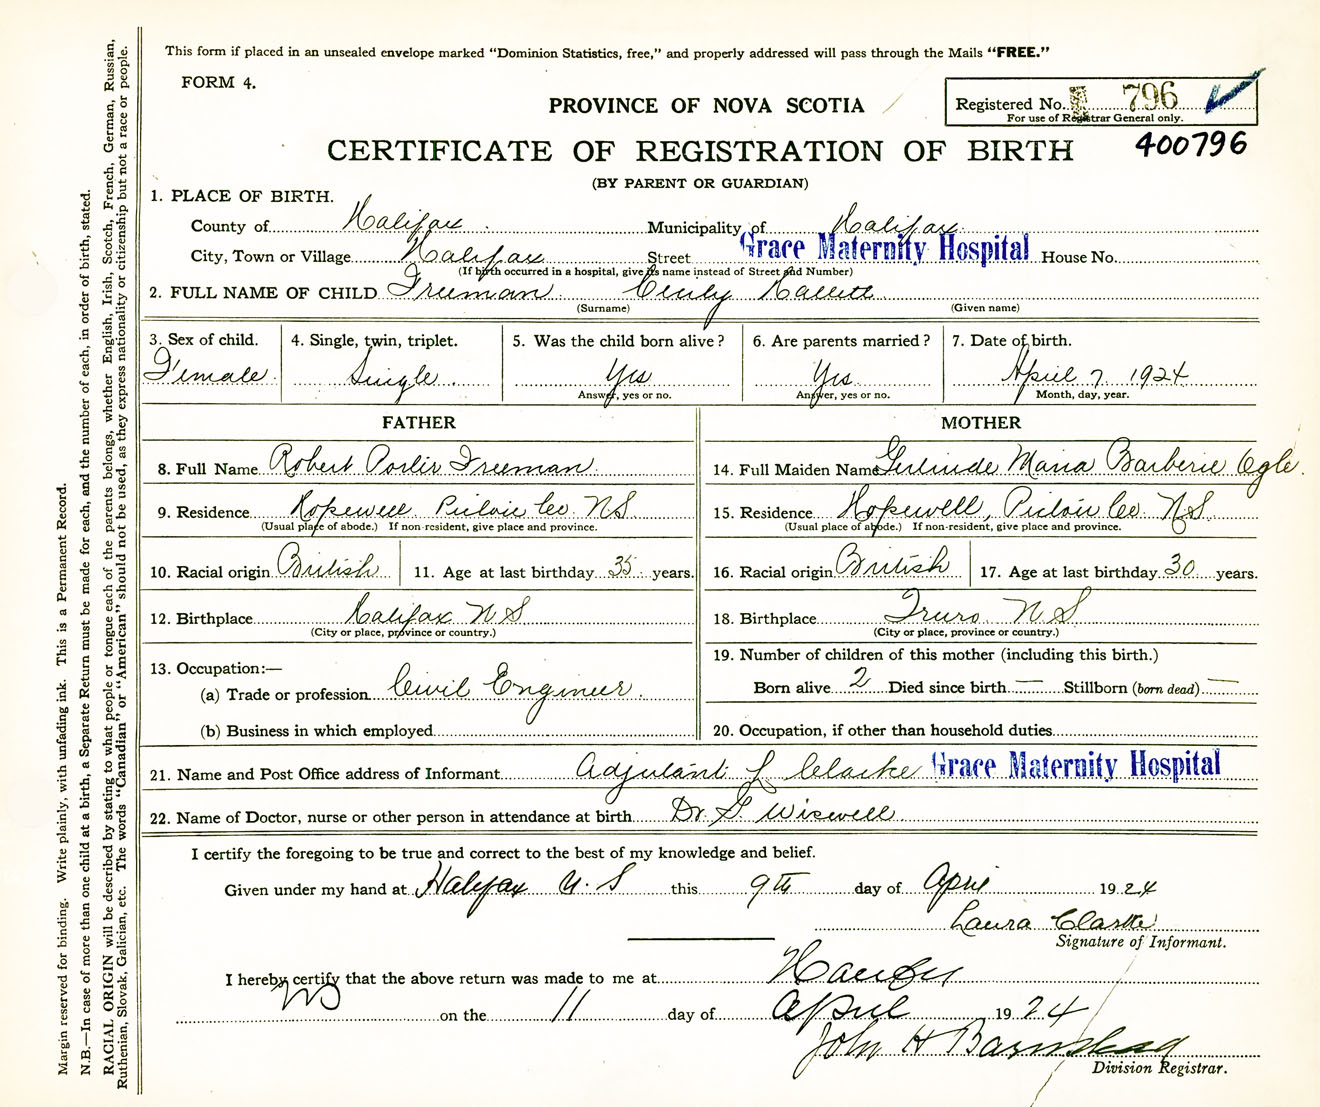 This form if placed in an unsealed envelope marked "Dominion Statistics, free," and properly addressed will pass through the Mails "FREE."
FORM 4.
Registered No. 796
For use of Registrar General only.
PROVINCE OF NOVA SCOTIA
400796
CERTIFICATE OF REGISTRATION OF BIRTH
(BY PARENT OR GUARDIAN)
1. PLACE OF BIRTH.
County of Halifax Municipality of Halifax
City, Town or Village Halifax Street Grace Maternity Hospital House No.
(If birth occurred in a hospital, give its name instead of Street and Number)
2. FULL NAME OF CHILD Freeman Cecily Hallett
(Surname) (Given name)
3. Sex of child. 4. Single, twin, triplet. 5. Was the child born alive? 6. Are parents married? 7. Date of birth.
Female Single Yes Yes April 7 1924
Answer, yes or no. Answer, yes or no. Month, day, year.
FATHER
8. Full Name Robert Porter Freeman
9. Residence Hopewell Pictou Co. NS
(Usual place of abode.) If non-resident, give place and province.
10. Racial origin British 11. Age at last birthday 35 years.
12. Birthplace Halifax NS
(City or place, province or country.)
13. Occupation:—
(a) Trade or profession Civil Engineer
(b) Business in which employed
MOTHER
14. Full Maiden Name Gertrude Maria Barberie Ogle
15. Residence Hopewell, Pictou Co. NS
(Usual place of abode.) If non-resident, give place and province.
16. Racial origin British 17. Age at last birthday 30 years.
18. Birthplace Truro NS
(City or place, province or country.)
19. Number of children of this mother (including this birth.)
Born alive 2 Died since birth — Stillborn (born dead) —
20. Occupation, if other than household duties
21. Name and Post Office address of Informant Adjutant L Clarke Grace Maternity Hospital
22. Name of Doctor, nurse or other person in attendance at birth Dr. G. Wiswell
I certify the foregoing to be true and correct to the best of my knowledge and belief.
Given under my hand at Halifax N. S this 9th day of April 1924
Laura Clarke
Signature of Informant.
I hereby certify that the above return was made to me at Halifax
NS on the 11 day of April 1924
John H Barnstead
Division Registrar.
Margin reserved for binding. Write plainly, with unfading ink. This is a Permanent Record.
N.B.—In case of more than one child at a birth, a Separate Return must be made for each, and the number of each, in order of birth, stated.
RACIAL ORIGIN will be described by stating to what people or tongue each of the parents belongs, whether English, Irish, Scotch, French, German, Russian,
Ruthenian, Slovak, Galician, etc. The words "Canadian" or "American" should not be used, as they express nationality or citizenship but not a race or people.